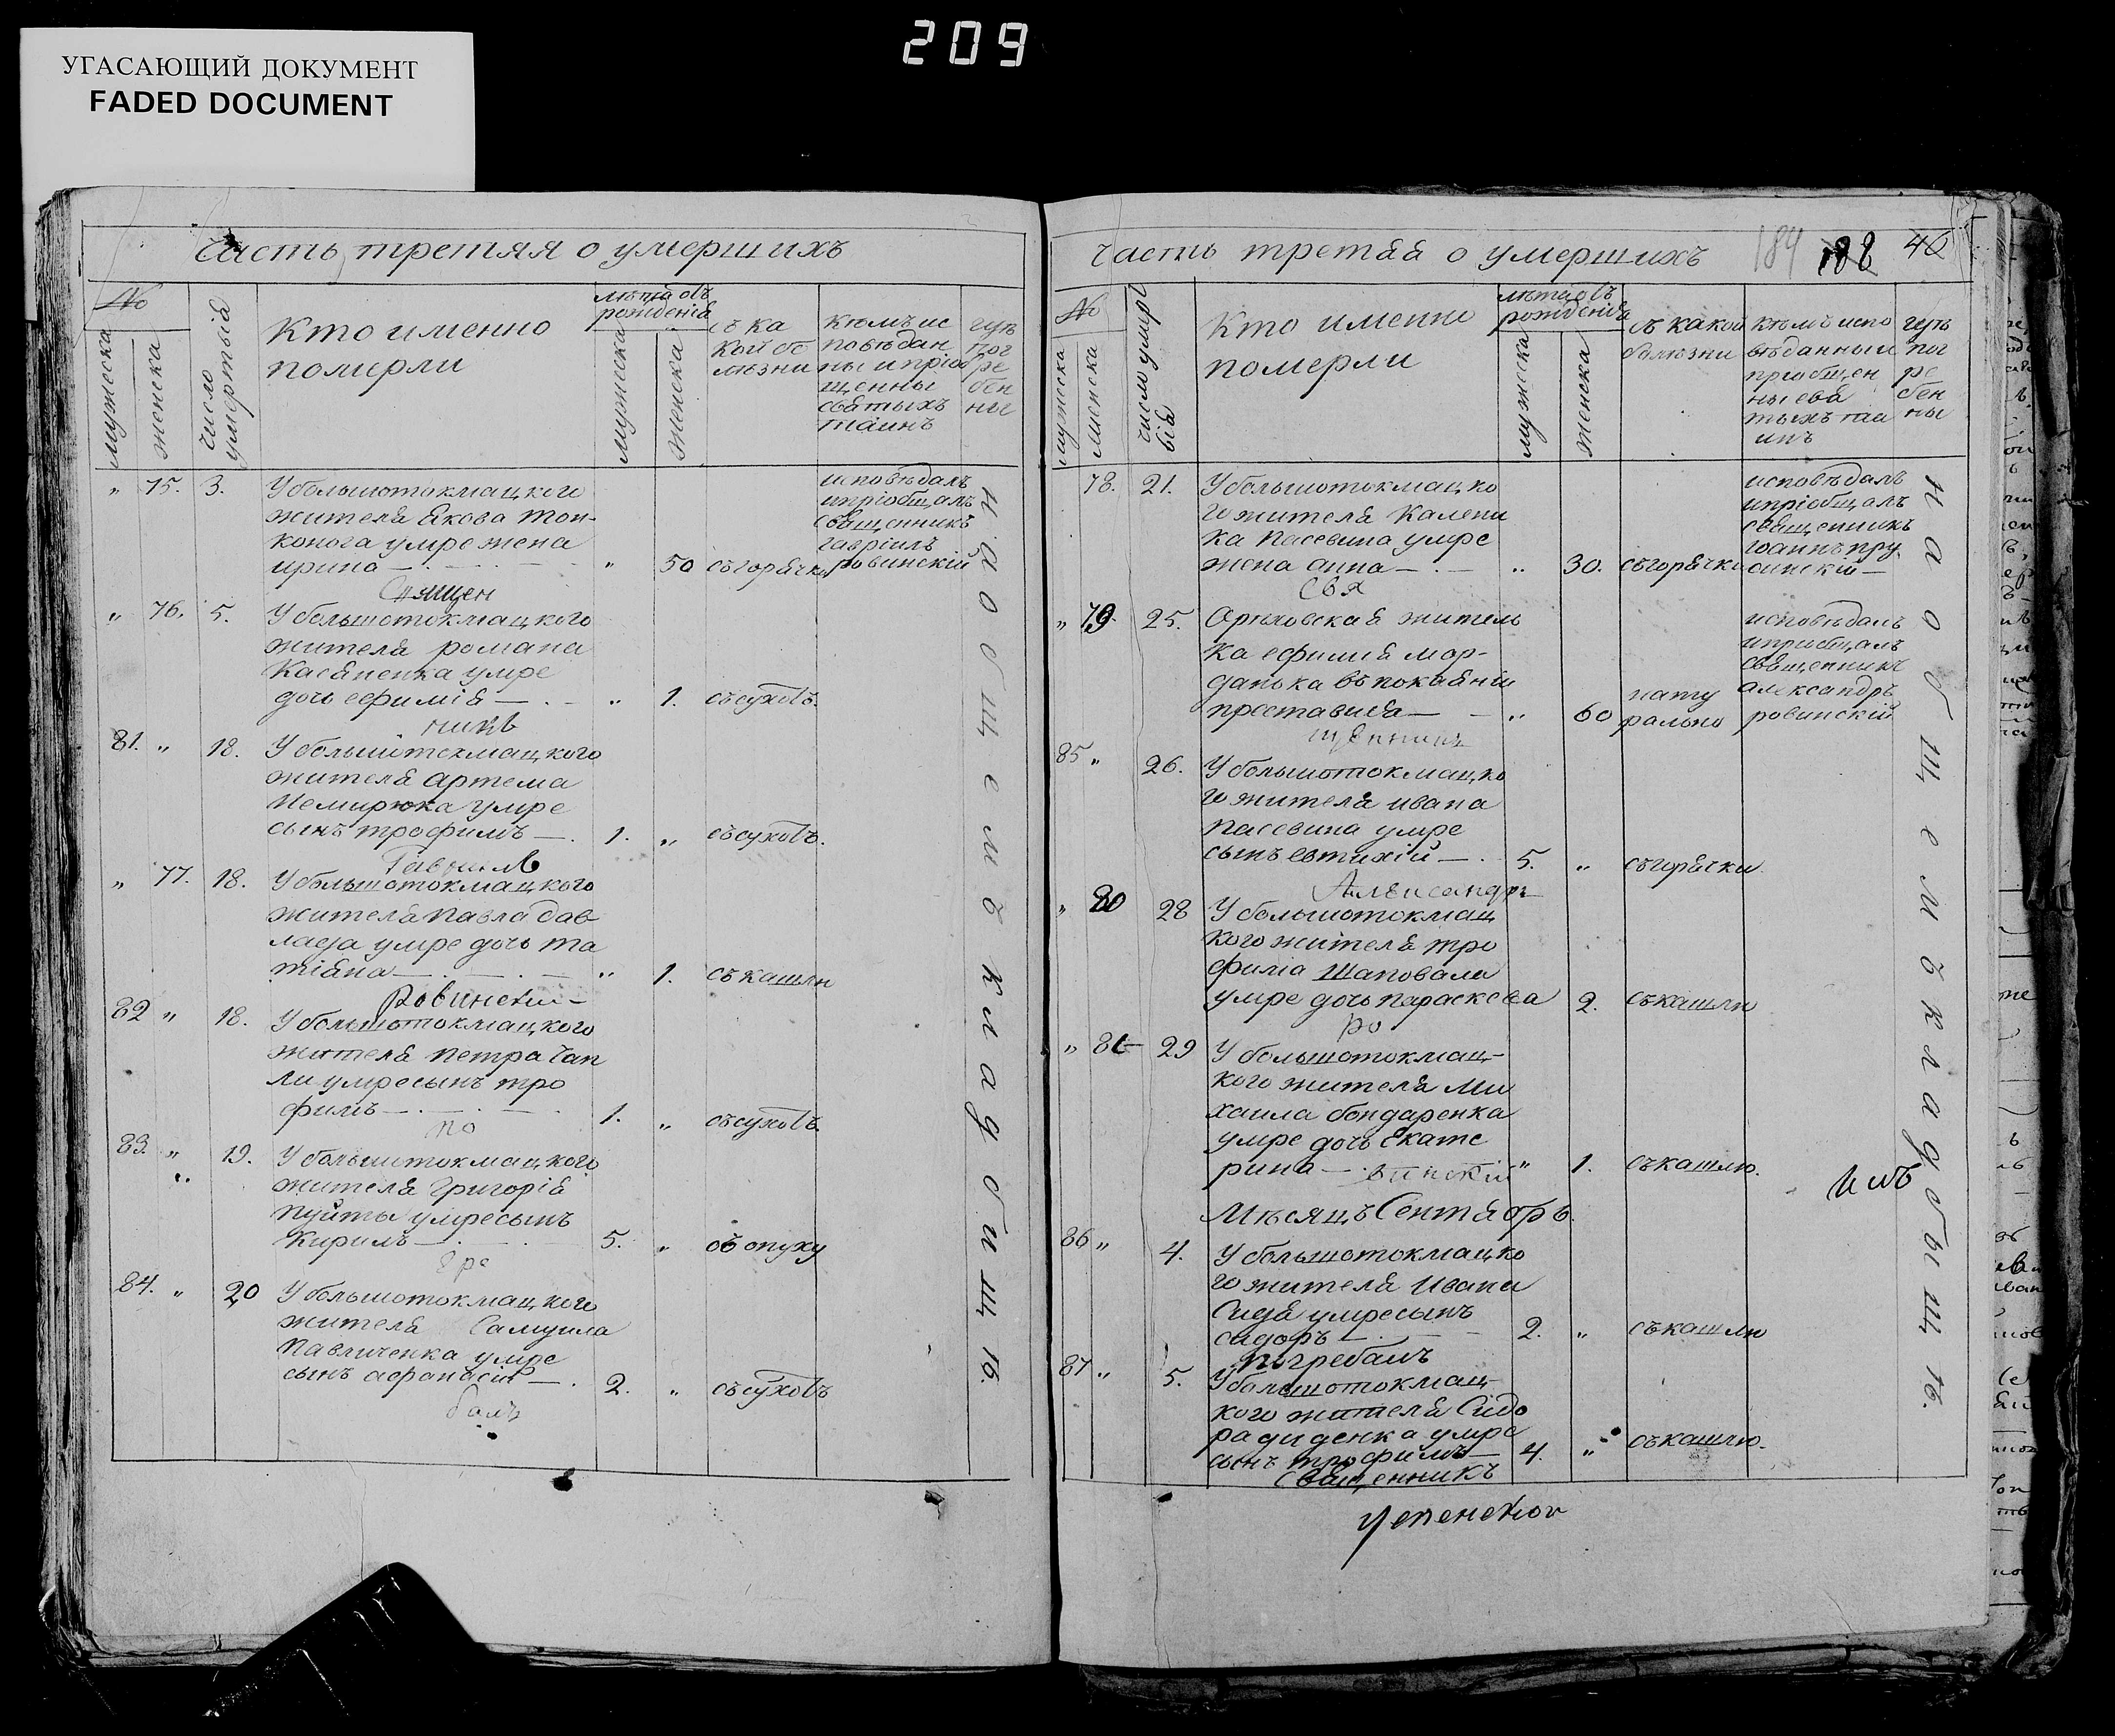 209
УГАСАЮЩИЙ ДОКУМЕНТ
FADED DOCUMENT
Часть третяя о умершихъ
№
мужеска
женска
число умертвія
Кто именно
померли
лѣта отъ
рожденія
мужеска
женска
съ ка
кой бо
лѣзни
кѣмъ ис
повѣдан
ны и пріоб
щенны
святыхъ
таинъ
гдѣ
пог
ре
бен
ны
„ 75. 3. У большотокмацкого
жителя Якова Тон-
конога умре жена
ирина — „ 50 съ горячки
исповѣдалъ
и пріобщалъ
священникъ
гавріилъ
ровинскій
Священ
„ 76. 5. У большотокмацкого
жителя романа
Касяненка умре
дочь ефимія — „ 1. съ сухотъ.
никъ
81. „ 18. У большотокмацкого
жителя артема
Немирюка умре
сынъ трофимъ — 1. „ съ сухотъ.
Гавриилъ
„ 77. 18. У большотокмацкого
жителя павла дов
умре дочь та
тіяна — „ 1. съ кашлю
Ровинский
82 „ 18. У большотокмацкого
жителя петра Чап
ли умре сынъ тро
фимъ — 1. „ съ сухотъ.
по
83. „ 19. У большотокмацкого
жителя григорія
пуйты умре сынъ
Кирилъ — 5. „ отъ опуху
гре
84. „ 20 У большотокмацкого
жителя Самуила
Павличенка умре
сынъ афанасій — 2. „ съ сухотъ
балъ
на общемъ кладбищѣ.
Часть третяя о умершихъ
184 188 46
№
мужеска
женска
число умерт
вія
Кто именно
померли
лѣта отъ
рожденія
мужеска
женска
съ какой
болѣзни
кѣмъ испо
вѣданны и
пріобщен
ны свя
тыхъ таи
инъ
гдѣ
пог
ре
бен
ны
78. 21. У большотокмацко
го жителя Калени
ка Пасевина умре
жена анна — „ 30. съ горячки
исповѣдалъ
и пріобщалъ
священникъ
іоаннъ пру
синскій —
Свя
„ 79. 25. Орѣховская житель
ка ефимия мор-
данька въ покаяніи
преставися — „ 60 нату
рально
исповѣдалъ
и приобщалъ
священникъ
александръ
ровинскій
щенникъ
85 „ 26. У большотокмацко
го жителя ивана
Пасевина умре
сынъ евтихій — 5. „ съ горячки
Александръ
„ 80 28 У большотокмац
кого жителя тро
фима Шаповала
умре дочь параскева 2. съ кашлю
ро
„ 81 29 У большотокмац-
кого жителя Ми
хаила бондаренка
умре дочь Екате
рина — „ 1. съ кашлю.
винскій
Мѣсяцъ Сентябрь.
86 „ 4. У большотокмацко
го жителя Ивана
умре сынъ
сидоръ — 2. „ съ кашлю
погребалъ
87 „ 5. У большотокмац-
кого жителя Сидо
ра диденка умре
сынъ трофимъ — 4. „ съ кашлю.
Священникъ
на общемъ кладбыщѣ.